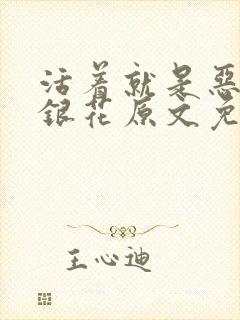 活着就是恶
银花原文免
王心迪